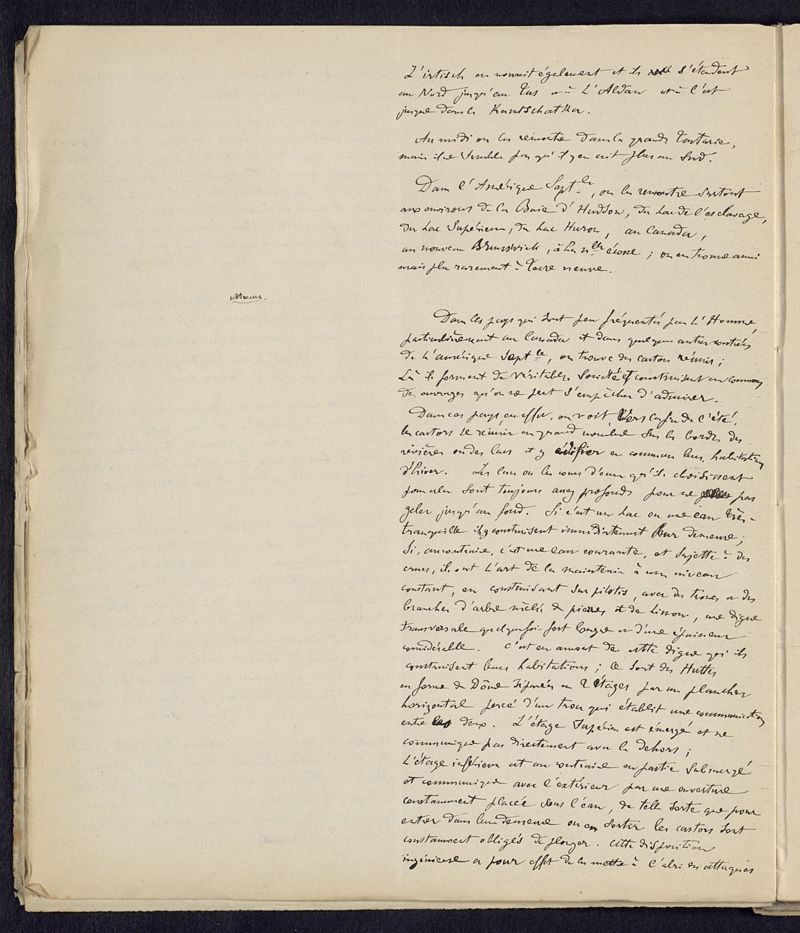 L'irtisch en nourrit également et ils s'étendent
au Nord jusqu'au Tas et à L'Aldan et à l'Est
jusque dans le Kamtschatka.
Au midi on les rencontre dans la grande Tartarie,
mais il ne semble pas qu'il y en ait plus au Sud.
Dans l'Amérique Sept.le, on les rencontre surtout
aux environs de la Baie d'Hudson, du Lac de l'esclavage,
du Lac Supérieur, du Lac Huron, au Canada,
au nouveau Brunswick, à la n.lle écosse ; on en trouve aussi
mais plus rarement à Terre neuve.
Mœurs.
Dans les pays qui sont peu fréquentés par L'Homme,
particulièrement au Canada et dans quelques autres contrées
de L'amérique Sept.le, on trouve des castors réunis ;
Là ils forment de véritables Sociétés et construisent en commun
des ouvrages qu'on ne peut s'empêcher d'admirer.
Dans ces pays en effet, on voit, Vers la fin de l'été,
les castors se réunir en grand nombre sur les bords des
rivières ou des lacs et y édifier en commun leurs habitations
d'hiver. Les lacs ou les cours d'eau qu'ils choisissent
pour cela sont toujours assez profonds pour ne pas
geler jusqu'au fond. Si c'est un Lac ou une eau très-
tranquille ils y construisent immédiatement leur demeure ;
Si, au contraire, c'est une eau courante, et sujette à des
crues, ils ont L'art de la maintenir à un niveau
constant, en construisant sur pilotis, avec des troncs et des
branches d'arbre mêlés de pierres et de limon, une digue
transversale quelquefois fort longue et d'une épaisseur
considérable. C'est en amont de cette digue qu'ils
construisent leurs habitations ; ce sont des Huttes
en forme de Dôme séparées en 2 étages par un plancher
horizontal percé d'un trou qui établit une communication
entre les deux. L'étage Supérieur est émergé et ne
communique pas directement avec le dehors ;
L'étage inférieur est au contraire en partie submergé
et communique avec l'extérieur par une ouverture
constamment placée sous l'eau, de telle sorte que pour
entrer dans leur demeure ou en sortir les castors sont
constamment obligés de plonger. Cette disposition
ingénieuse a pour effet de les mettre à l'abri des attaques